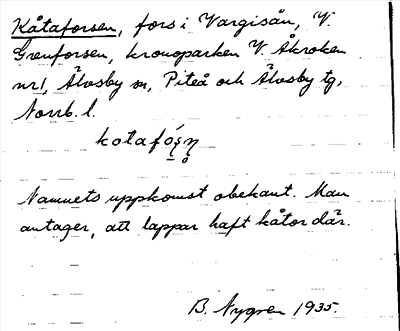 Kåtaforsen, fors i Vargisån, V.
Grenforsen, kronoparken V. Åkroken
nr 1, Älvsby sn, Piteå och Älvsby tg,
Norrb. l.
kotafó̱ʂn̥
Namnets uppkomst obekant. Man
antager, att lappar haft kåtor där.
B. Nygren 1935.